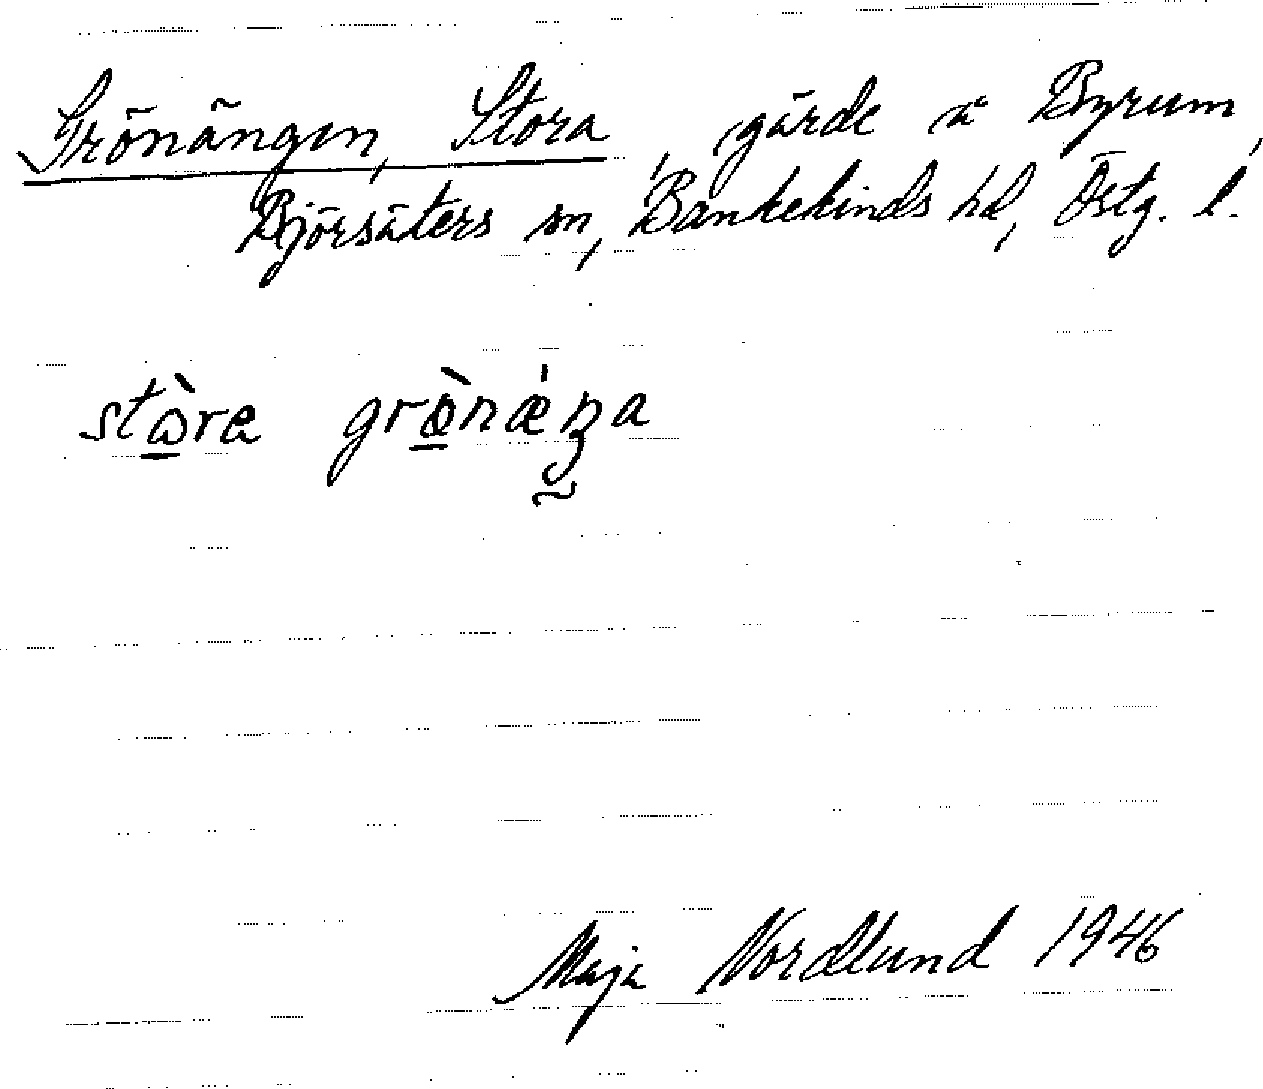 Grönängen, Stora, gärde å Byrum,
Björsäters sn, Bankekinds hd, Östg. l.
stòre grö̀nǽŋa
Maja Nordlund 1946